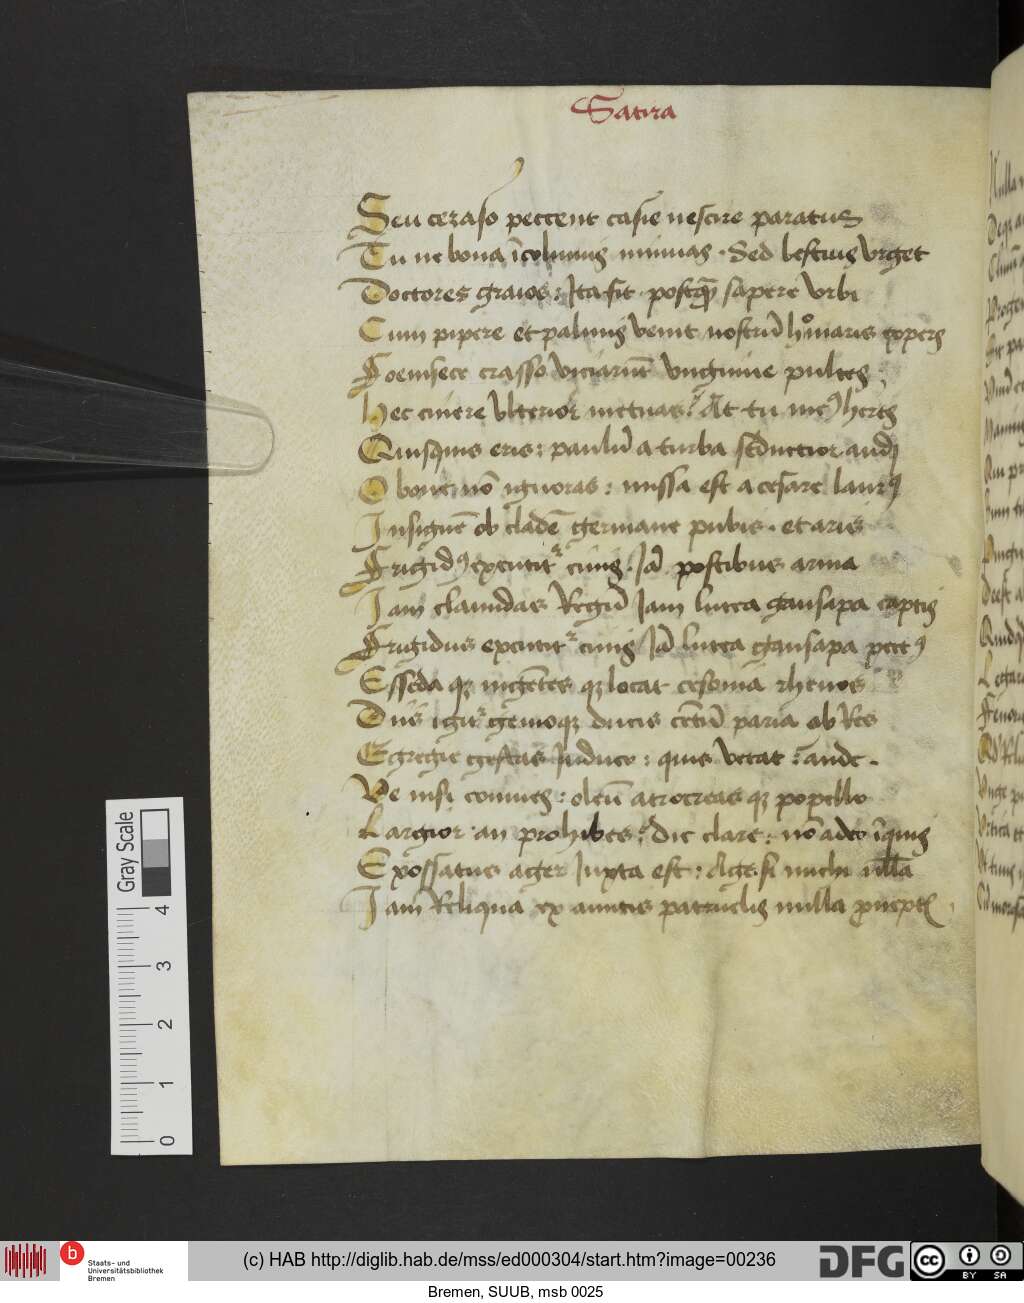 Satira
Seu ceraso peccent casie nescire paratus
Tu ne bona īcolumis minuas . Sed bestius vrget
Doctores graios : Ita fit postq̄ sapere vrbi
Cum pipere et palmis venit nostrū hoc maris expers
Foenisece crasso viciarūt vnguine pultes
Hec cinere vlterior metuas ? At tu meꝰ heres
Quisquis eris : paulū a turba seductior audi
O bone nō ignoras : missa est a cesare laurꝰ
Insignē ob cladē germane pubis . et aris
Frigidꝰ excutit᷑ cinis . Iā postibus arma
Iam clamidas Regū Iam lutea gausapa captis
Frigidus excutit᷑ cinis Iā lutea gausapa
Esseda qꝫ ingētes qꝫ locat cesonia rhenos
Diis igit᷑ genioqꝫ ducis cētū paria ob Res
Egregie gestas Induco : quis vetat ? aude .
Ve nisi connives : oleū atrocreas qꝫ popello
Largior . an prohibes ? dic clare : nō adeo īquis
Exossatus ager Iuxta est : Age si michi nulla
Iam Reliqua ex amitis patruelis nulla
Gray Scale
4
3
2
1
0
b
Staats- und
Universitätsbibliothek
Bremen
(c) HAB http://diglib.hab.de/mss/ed000304/start.htm?image=00236
DFG
cc
BY SA
Bremen, SUUB, msb 0025